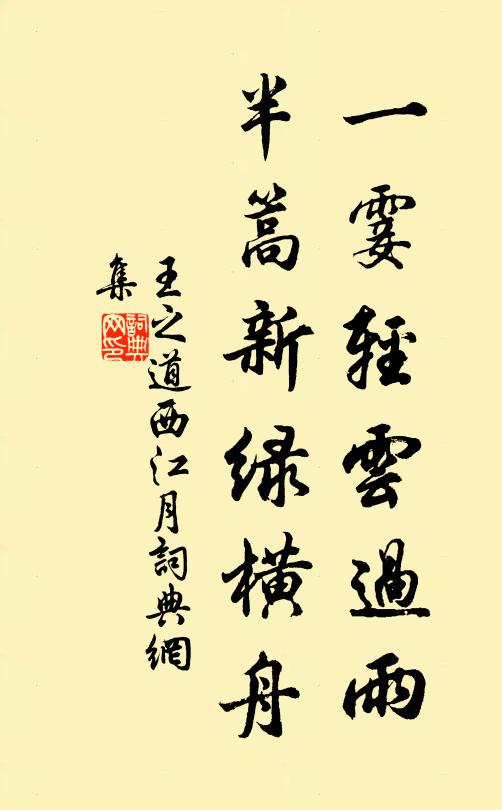 一霎輕雲過雨
半篙新緑橫舟
王之道西江月詞典網
集
詞典
网印